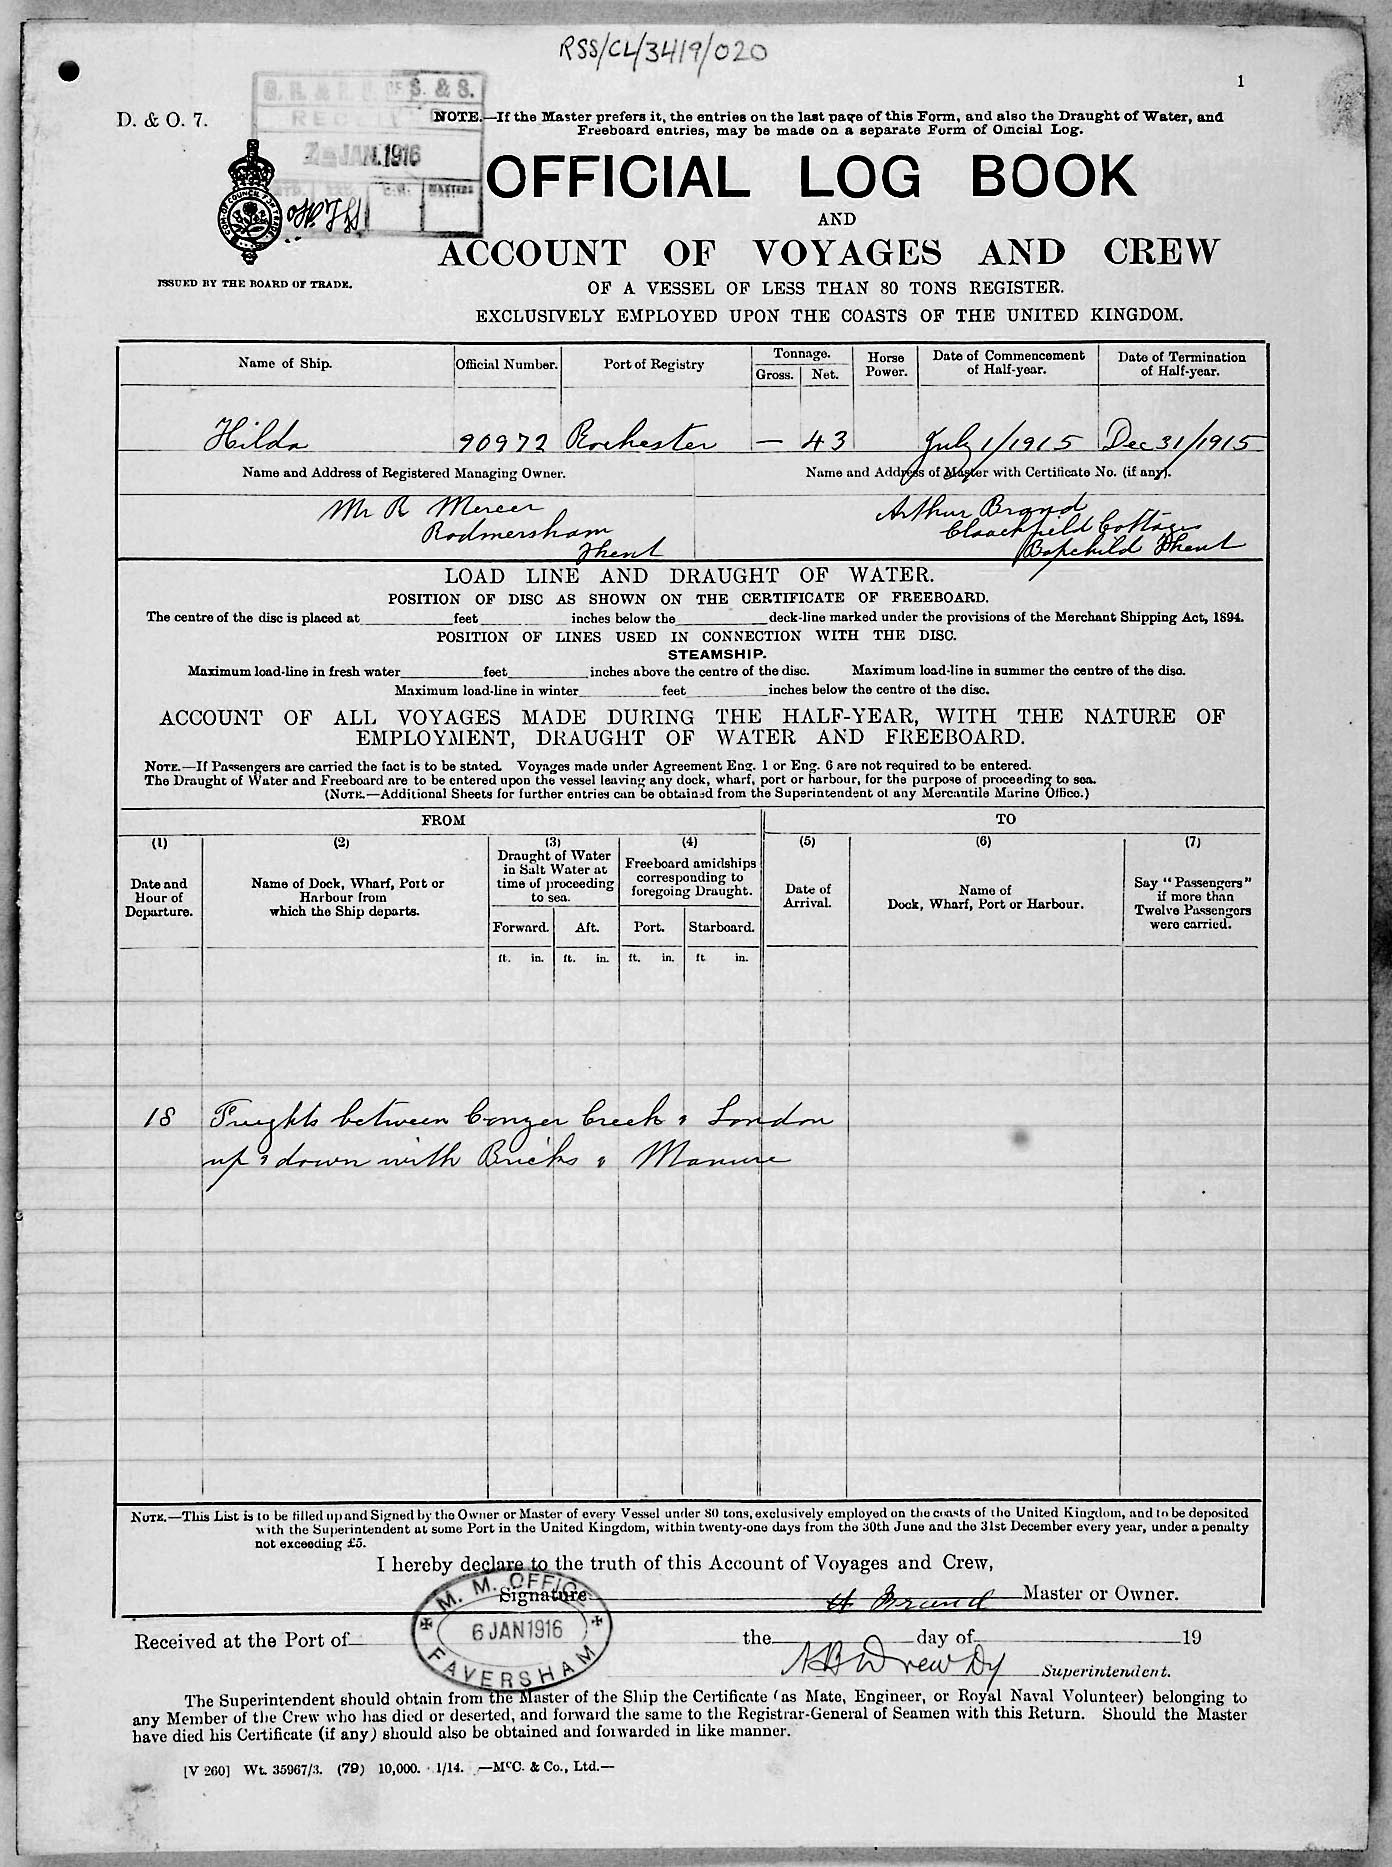 RSS/CL/3419/020
1
D. & O. 7.
S. & S.
JAN.1916
NOTE.—If the Master prefers it, the entries on the last page of this Form, and also the Draught of Water, and
Freeboard entries, may be made on a separate Form of Official Log.
OFFICIAL LOG BOOK
AND
ACCOUNT OF VOYAGES AND CREW
OF A VESSEL OF LESS THAN 80 TONS REGISTER.
EXCLUSIVELY EMPLOYED UPON THE COASTS OF THE UNITED KINGDOM.
ISSUED BY THE BOARD OF TRADE.
Name of Ship. Official Number. Port of Registry Tonnage. Gross. Net. Horse Power. Date of Commencement of Half-year. Date of Termination of Half-year.
Hilda 90972 Rochester — 43 July 1/1915 Dec 31/1915
Name and Address of Registered Managing Owner. Name and Address of Master with Certificate No. (if any).
Mr R Mercer
Rodmersham
Kent
Arthur Brand
Cottages
Bapchild Kent
LOAD LINE AND DRAUGHT OF WATER.
POSITION OF DISC AS SHOWN ON THE CERTIFICATE OF FREEBOARD.
The centre of the disc is placed at feet inches below the deck-line marked under the provisions of the Merchant Shipping Act, 1894.
POSITION OF LINES USED IN CONNECTION WITH THE DISC.
STEAMSHIP.
Maximum load-line in fresh water feet inches above the centre of the disc. Maximum load-line in summer the centre of the disc.
Maximum load-line in winter feet inches below the centre of the disc.
ACCOUNT OF ALL VOYAGES MADE DURING THE HALF-YEAR, WITH THE NATURE OF
EMPLOYMENT, DRAUGHT OF WATER AND FREEBOARD.
NOTE.—If Passengers are carried the fact is to be stated. Voyages made under Agreement Eng. 1 or Eng. 6 are not required to be entered.
The Draught of Water and Freeboard are to be entered upon the vessel leaving any dock, wharf, port or harbour, for the purpose of proceeding to sea.
(NOTE.—Additional Sheets for further entries can be obtained from the Superintendent of any Mercantile Marine Office.)
FROM TO
(1) (2) (3) (4) (5) (6) (7)
Date and Hour of Departure.
Name of Dock, Wharf, Port or Harbour from which the Ship departs.
Draught of Water in Salt Water at time of proceeding to sea.
Freeboard amidships corresponding to foregoing Draught.
Date of Arrival.
Name of Dock, Wharf, Port or Harbour.
Say "Passengers" if more than Twelve Passengers were carried.
Forward. Aft. Port. Starboard.
ft. in. ft. in. ft. in. ft in.
18 Freights between Conyer Creek & London
up & down with Bricks & Manure
NOTE.—This List is to be filled up and Signed by the Owner or Master of every Vessel under 80 tons, exclusively employed on the coasts of the United Kingdom, and to be deposited
with the Superintendent at some Port in the United Kingdom, within twenty-one days from the 30th June and the 31st December every year, under a penalty
not exceeding £5.
I hereby declare to the truth of this Account of Voyages and Crew,
Signature A Brand Master or Owner.
M. M. OFFICE
6 JAN 1916
FAVERSHAM
Received at the Port of the day of 19
Superintendent.
The Superintendent should obtain from the Master of the Ship the Certificate (as Mate, Engineer, or Royal Naval Volunteer) belonging to
any Member of the Crew who has died or deserted, and forward the same to the Registrar-General of Seamen with this Return. Should the Master
have died his Certificate (if any) should also be obtained and forwarded in like manner.
[V 260] Wt. 35967/3. (79) 10,000. 1/14. —McC. & Co., Ltd.—